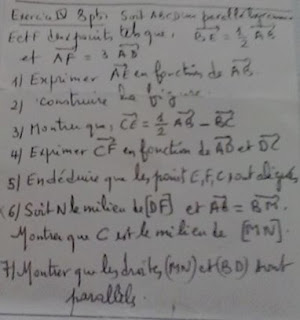 Exercice IV 8pts. Soit ABCD un parallélogramme
E et F deux points tels que, BE = 1/2 AB
et AF = 3 AD
1) Exprimer AE en fonction de AB.
2) Construire la figure.
3) Montrer que, CE = 1/2 AB - BC
4) Exprimer CF en fonction de AD et DC
5) En déduire que les point E, F, C sont alignés
6) Soit N le milieu de [DF] et AB = BM.
Montrer que C est le milieu de [MN].
7) Montrer que les droites (MN) et (BD) sont
parallels.